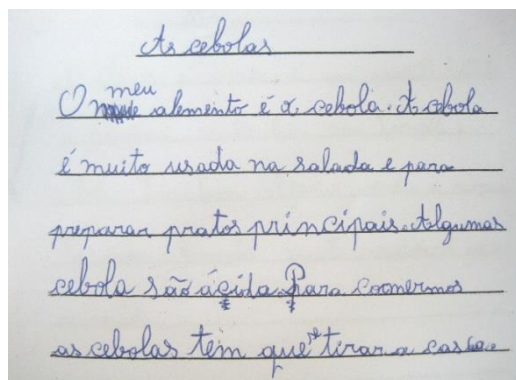 As cebolas
O meu alemento é a cebola. A cebola
é muito usada na salada e para
preparar pratos principais. Algumas
cebola são ácida. Para coomermos
as cebolas tem que re tirar a casca